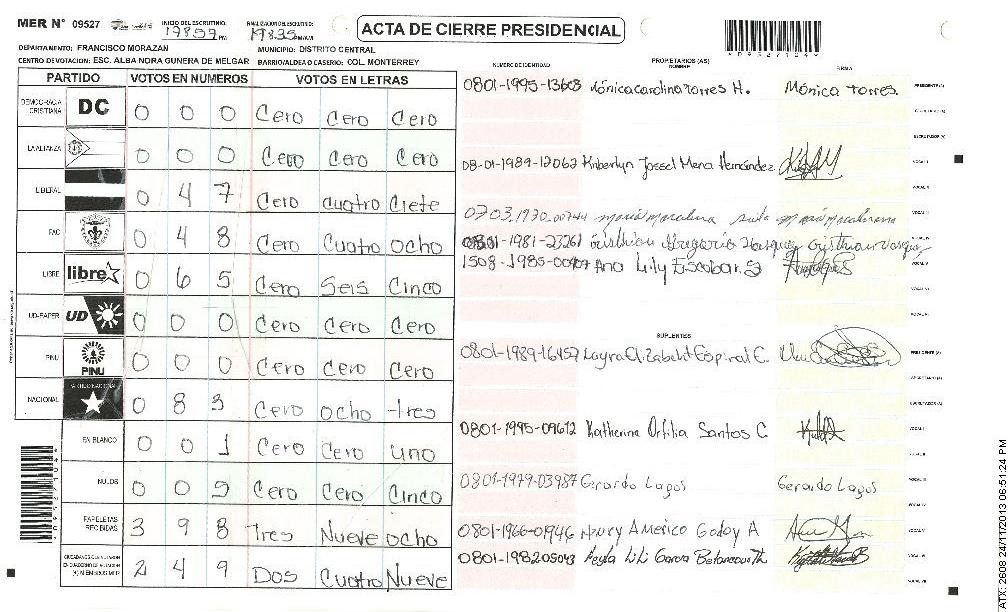 MER N° 09527 INICIO DEL ESCRUTINIO: FINALIZACION DEL ESCRUTINIO: ACTA DE CIERRE PRESIDENCIAL
DEPARTAMENTO: FRANCISCO MORAZAN MUNICIPIO: DISTRITO CENTRAL
CENTRO DE VOTACION: ESC. ALBA NORA GUNERA DE MELGAR BARRIO/ALDEA O CASERIO: COL MONTERREY
NUMERO DE IDENTIDAD PROPIETARIOS (AS) NOMBRE FIRMA
PARTIDO VOTOS EN NUMEROS VOTOS EN LETRAS
DEMOCRACIA CRISTIANA DC 0 0 0 Cero Cero Cero
LA ALIANZA 0 0 0 Cero Cero Cero
LIBERAL 0 4 7 Cero cuatro Ciete
PAC 0 4 8 Cero Cuatro ocho
LIBRE libre 0 6 5 Cero Seis Cinco
UD-FAPER UD 0 0 0 Cero Cero Cero
PINU PINU 0 0 0 Cero Cero Cero
NACIONAL PARTIDO NACIONAL 0 8 3 Cero ocho tres
EN BLANCO 0 0 1 Cero Cero uno
NULOS 0 0 5 Cero Cero Cinco
PAPELETAS RECIBIDAS 3 9 8 Tres Nueve ocho
2 4 9 Dos Cuatro Nueve
0801-1995-13603 Mónica Carolina Torres H. Mónica Torres. PRESIDENTE(A)
08-01-1989-12062 Kinberlyn Jossel Mena Hernández VOCAL I
1981-23261
Ana Lily Escobar S VOCAL V
SUPLENTES
0801-1989-16457 Layra Elizabeht Espinal C. PRESIDENTE (A)
0801-1995-09612 Katherine Orfilia Santos C VOCAL I
0801-1979-03987 Gerardo Lagos Gerardo Lagos VOCAL III
0801-1966-01946 Americo Godoy A VOCAL V
0801-198205043 Keyla Lili VOCAL VI
VOCAL VII
ATX: 2608 24/11/2013 06:51:24 PM